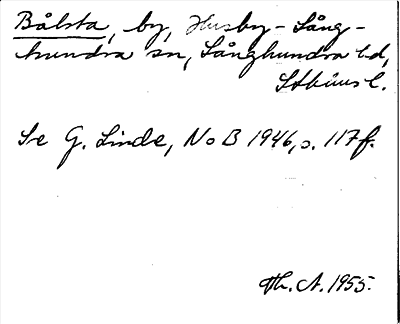 Bålsta, by, Husby-Lång-
hundra sn, Långhundra hd,
Sthlms l.
Se G. Linde, NoB 1946, s. 117 f.
Th. A. 1955.